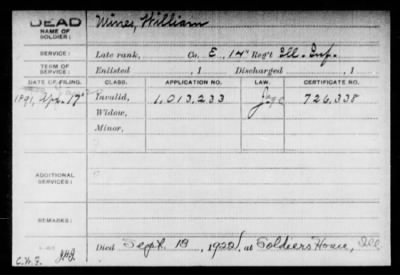 DEAD
NAME OF SOLDIER: Wines, William
SERVICE: Late rank, Co. E, 14" Reg't Ill. Inf.
TERM OF SERVICE: Enlisted , 1 Discharged , 1
DATE OF FILING. CLASS. APPLICATION NO. LAW. CERTIFICATE NO.
1891, Apr. 17 Invalid, 1,013,233 726,338
Widow,
Minor,
ADDITIONAL SERVICES:
REMARKS:
Died Sept. 18, 1922, at Soldiers Home, Ill.